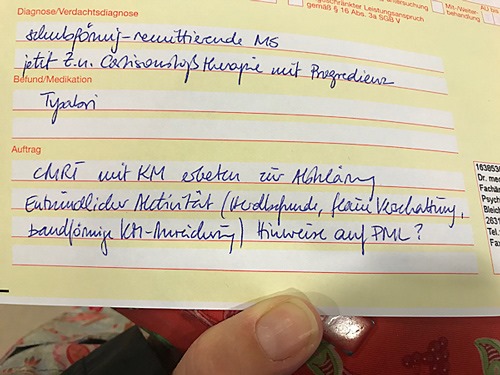 geschränkter Leistungsanspruch
gemäß § 16 Abs. 3a SGB V
Mit-/Weiter-
behandlung
AU bis
Diagnose/Verdachtsdiagnose
schubförmig-remittierende MS
jetzt Z.n. Cortisonstoßtherapie mit
Befund/Medikation
Tysabri
Auftrag
cMRT mit KM erbeten zur Abklärung
Entzündlicher Aktivität (Herdbefunde, flaue Verschattung,
bandförmige KM-Anreicherung) Hinweise auf PML?
Dr. med
Fachär
Psych
Bleich
Tel.
Fax